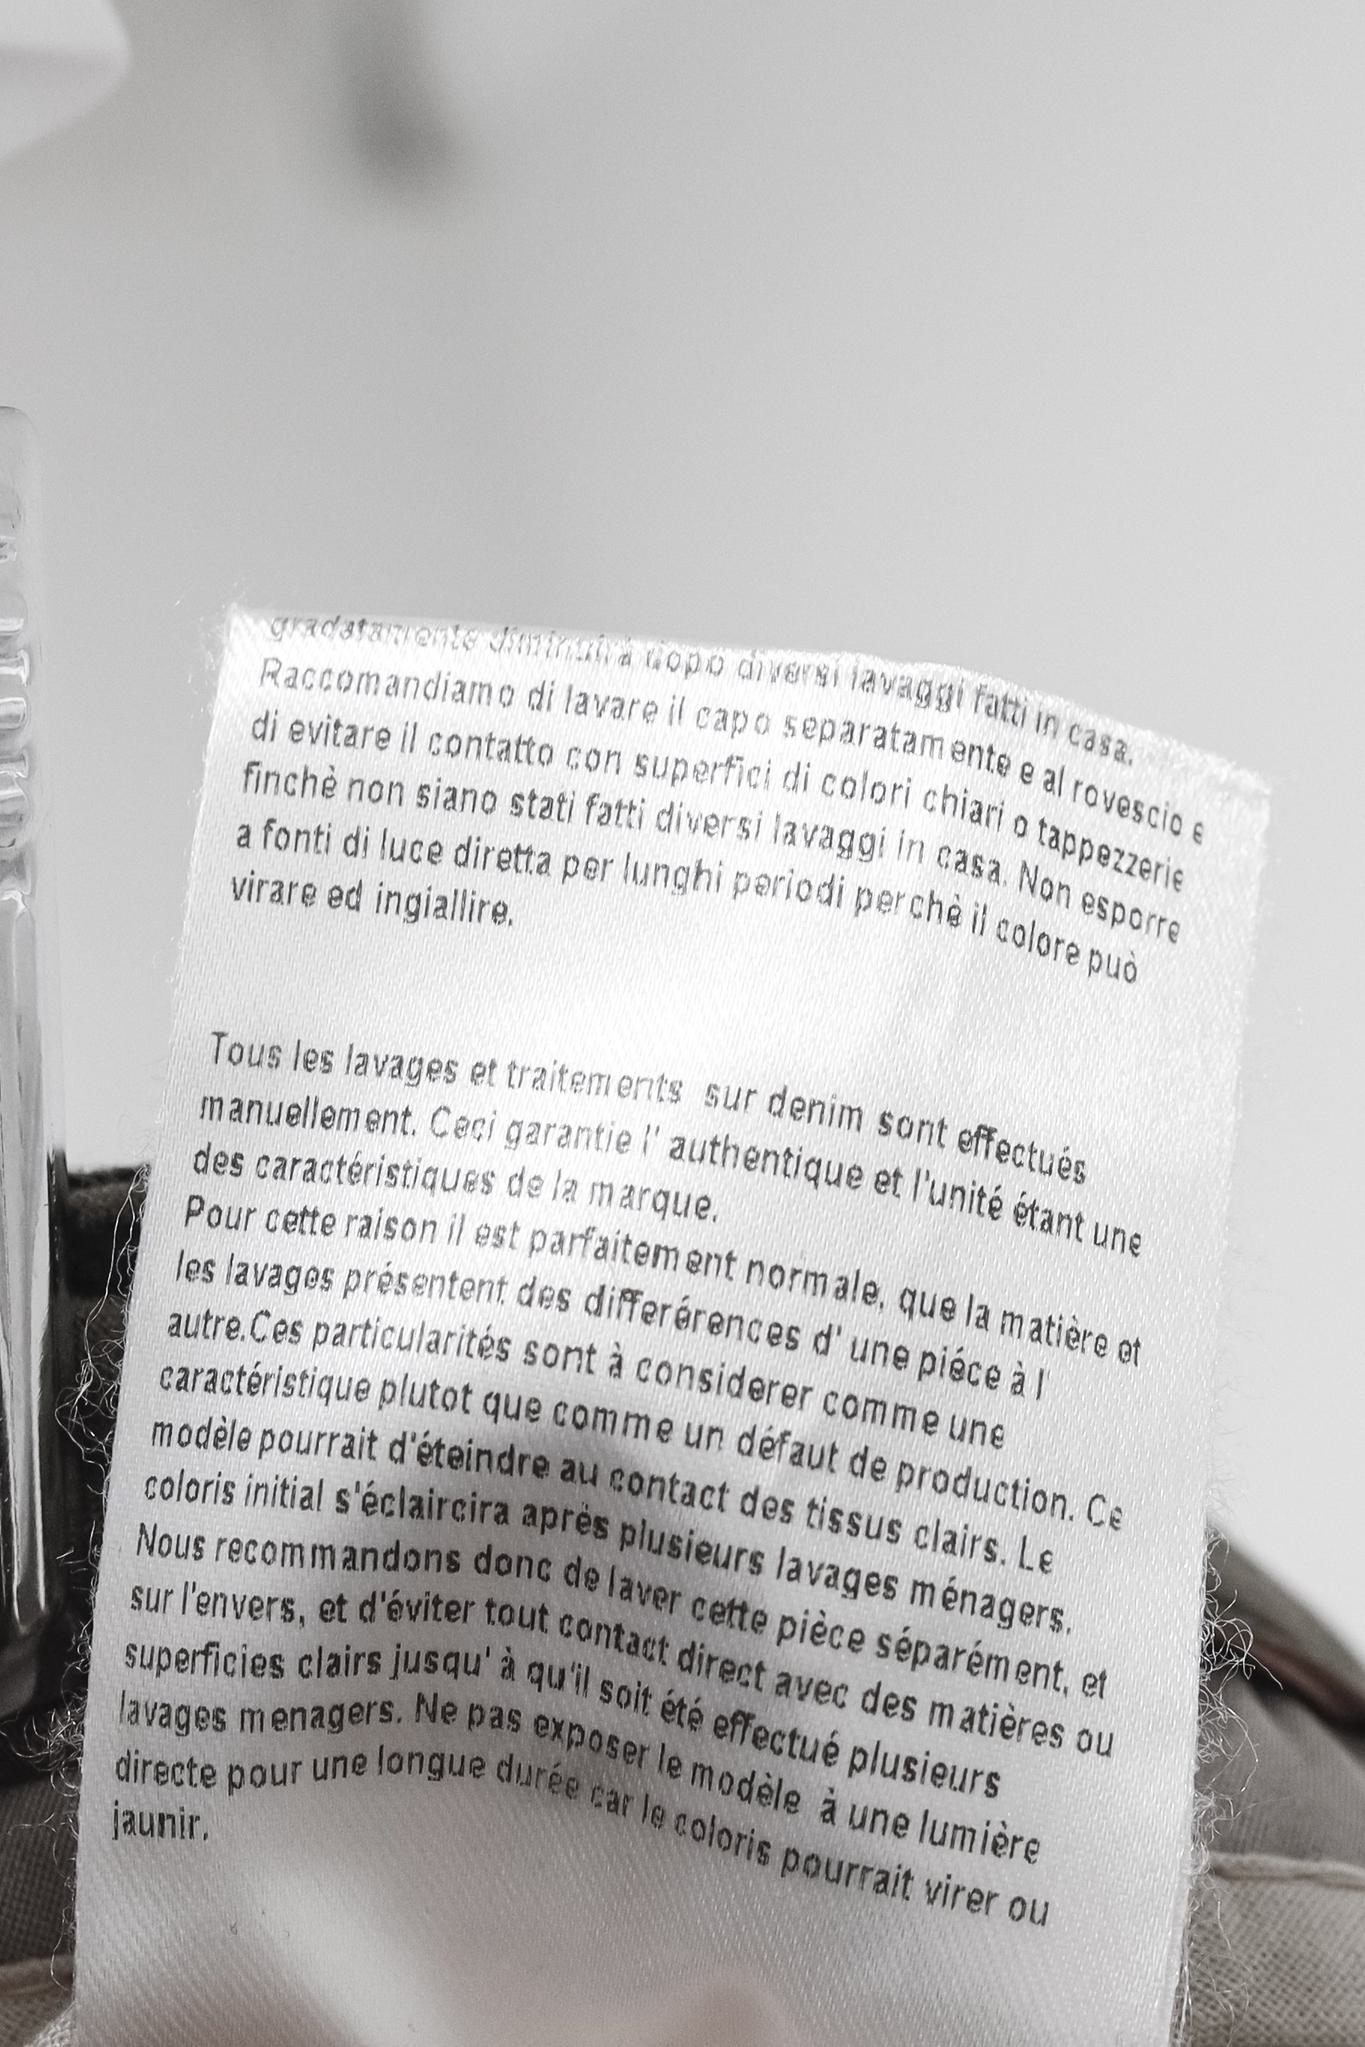 gradatamente diminuirà dopo diversi lavaggi fatti in casa.
Raccomandiamo di lavare il capo separatamente e al rovescio e
di evitare il contatto con superfici di colori chiari o tappezzerie
finchè non siano stati fatti diversi lavaggi in casa. Non esporre
a fonti di luce diretta per lunghi periodi perchè il colore può
virare ed ingiallire.
Tous les lavages et traitements sur denim sont effectués
manuellement. Ceci garantie l' authentique et l'unité étant une
des caractéristiques de la marque.
Pour cette raison il est parfaitement normale, que la matière et
les lavages présentent des differérences d' une piéce à l'
autre.Ces particularités sont à considerer comme une
caractéristique plutot que comme un défaut de production. Ce
modèle pourrait d'éteindre au contact des tissus clairs. Le
coloris initial s'éclaircira après plusieurs lavages ménagers.
Nous recommandons donc de laver cette pièce séparément, et
sur l'envers, et d'éviter tout contact direct avec des matières ou
superficies clairs jusqu' à qu'il soit été effectué plusieurs
lavages menagers. Ne pas exposer le modèle à une lumière
directe pour une longue durée car le coloris pourrait virer ou
jaunir.